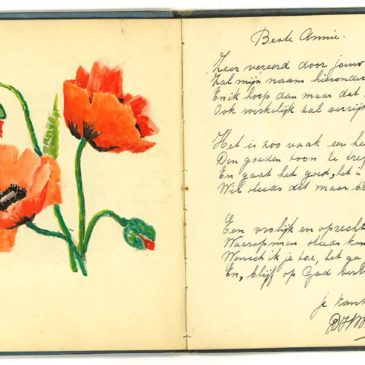 Beste Annie.
Zeer vereerd door jouw
Zal mijn naam hieronder
En ik hoop dan maar dat
Ook werkelijk zal
Het is zoo vaak een
Den goeden toon te
En gaat het goed, het is
Wil steeds dit maar
Een vrolijk en oprecht
Waarop men steeds kan
Wensch ik je toe, het ga
En, blijf op God
je